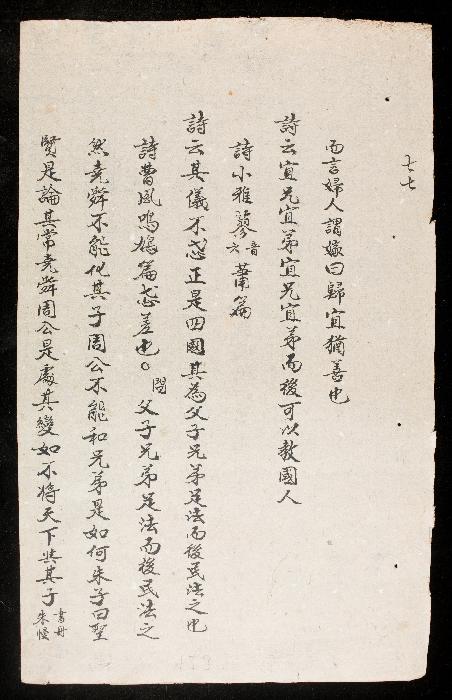 七七
而言婦人謂嫁曰歸宜猶善也
詩云宜兄宜弟宜兄宜弟而後可以教國人
詩小雅蓼音六蕭篇
詩云其儀不忒正是四國其為父子兄弟足法而後民法之也
詩曹風鳴鳩篇忒差也。問父子兄弟足法而後民法之
然堯舜不能化其子周公不能和兄弟是如何朱子曰聖
賢是論其常堯舜周公是處其變如不將天下與其子書丹朱慢